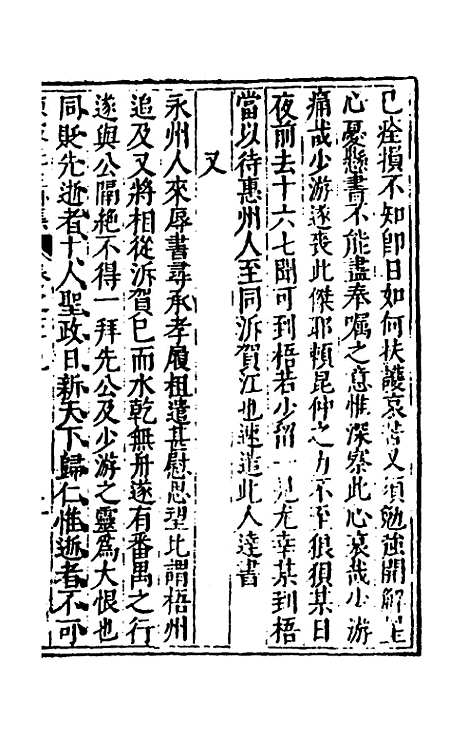 已痊損不知即日如何扶護哀苦又須勉強開解是
心憂懸書不能盡奉囑之意惟深察此心哀哉少游
痛哉少游遂喪此傑耶賴昆仲之力不至狼狽某日
夜前去十六七間可到梧若少留一見尤幸某到梧
當以待惠州人至同泝賀江也速遣此人達書
又
永州人來辱書尋承孝履粗遣甚慰思望比謂梧州
追及又將相從泝賀已而水乾無舟遂有番禺之行
遂與公隔絕不得一拜先公及少游之靈為大恨也
同貶先逝者十人聖政日新天下歸仁惟逝者不可